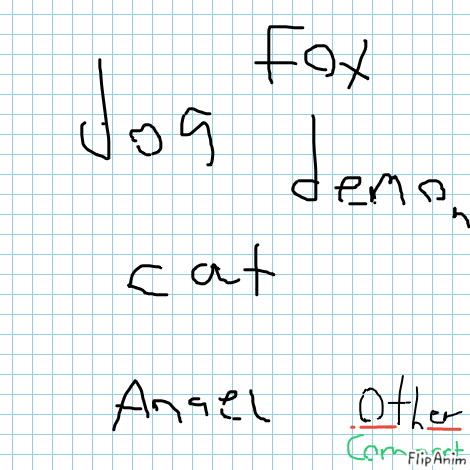 Fox
dog
demon
cat
Angel
Other
Comment
FlipAnim